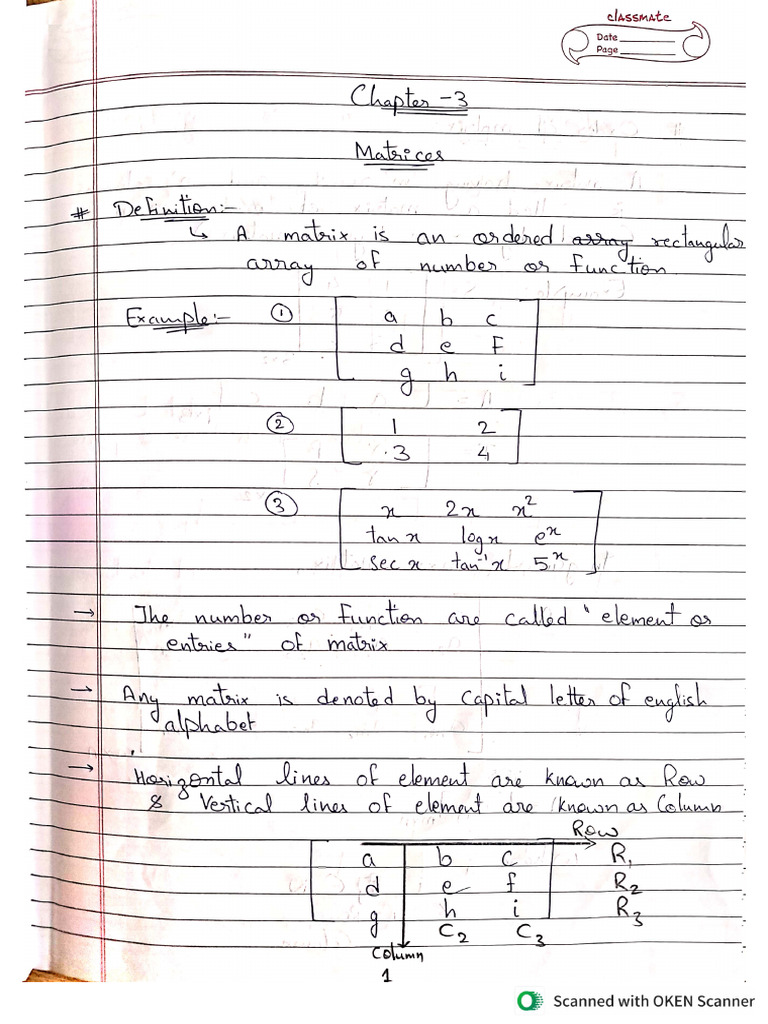 classmate
Date
Page
Chapter - 3
Matrices
# Definition:-
↳ A matrix is an ordered array rectangular
array of number or function
Example:- ① a b c
d e f
g h i
② 1 2
3 4
③ x 2x x²
tan x log x eˣ
sec x tan⁻¹x 5ˣ
→ The number or function are called "element or
entries" of matrix
→ Any matrix is denoted by capital letter of english
alphabet
→ Horizontal lines of element are known as Row
& Vertical lines of element are known as Column
Row
a b c R₁
d e f R₂
g h i R₃
C₂ C₃
Column
1
Scanned with OKEN Scanner